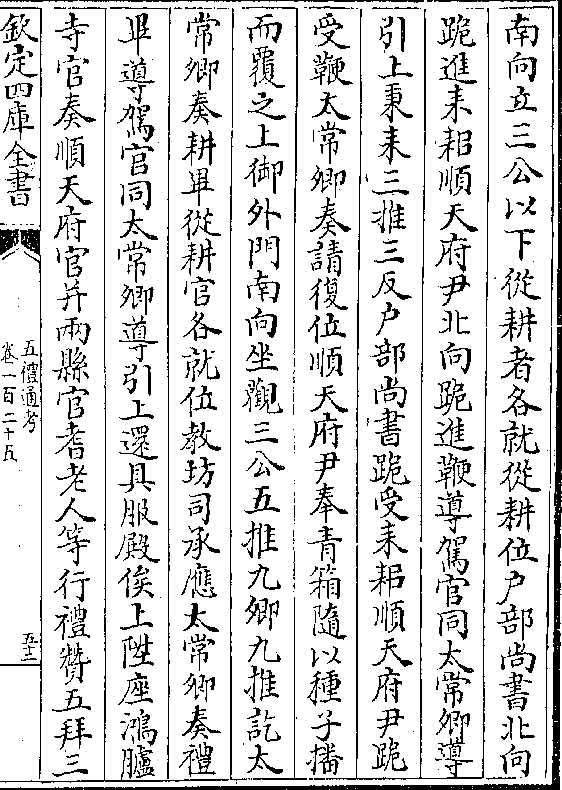 南向立三公以下從耕者各就從耕位户部尚書北向
跪進耒耜順天府尹北向跪進鞭導駕官同太常卿導
引上秉耒三推三反户部尚書跪受耒耜順天府尹跪
受鞭太常卿奏請復位順天府尹奉青箱隨以種子播
而覆之上御外門南向坐觀三公五推九卿九推訖太
常卿奏耕畢從耕官各就位教坊司承應太常卿奏禮
畢導駕官同太常卿導引上還具服殿俟上陞座鴻臚
寺官奏順天府官并兩縣官耆老人等行禮贊五拜三
欽定四庫全書
五禮通考
卷一百二十五
五十三